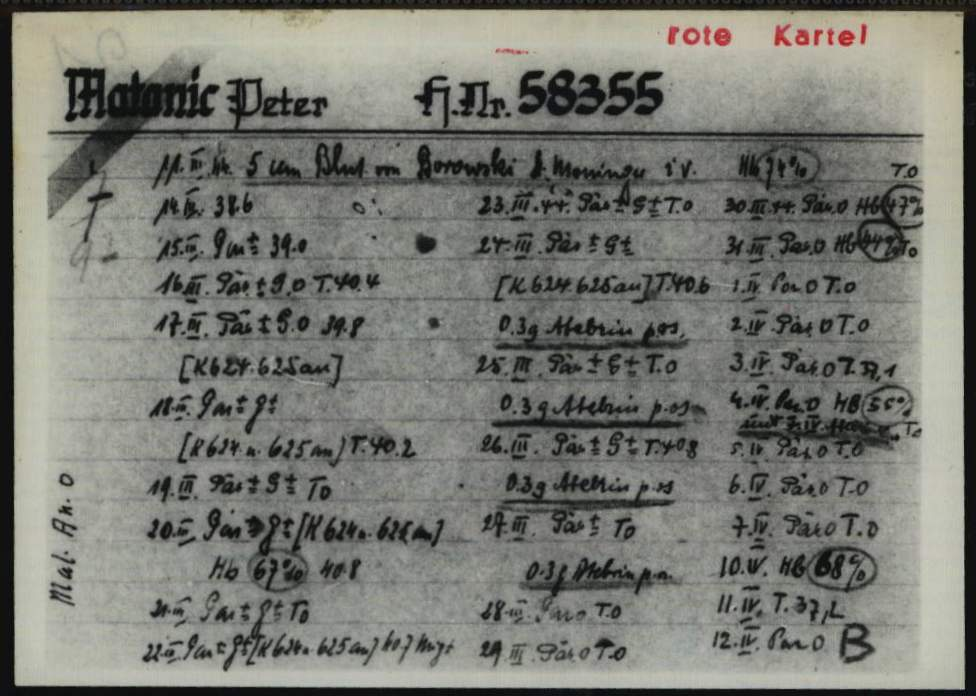 rote Kartei
Matanic Peter H.Nr. 58355
11.III.44. 5 ccm Blut von Borowski i.v. Hb 74% T.0
14.III. 38.6
15.III. Par ± 39.0
16.III. Par. ± G.0 T.40.4
17.III. Par ± G.0 39.8
[K624.625 an]
18.III. Par ± G ±
[K624.u.625 an] T.40.2
19.III. Par ± G ± T0
20.III. Par ± G ± [K624u.625 an]
Hb 67% 40.8
21.III. Par ± G ± T0
22.III. Par ± G ± [K624u.625 an] 40.7
23.III.44. Par ± G ± T.0
24.III. Par ± G ±
[K624.625 an] T.40.6
0.3g Atebrin p.os.
25.III. Par ± G ± T.0
0.3g Atebrin p.os
26.III. Par ± G ± T.40.8
0.3g Atebrin p.os
27.III. Par ± T0
0.3g Atebrin p.o.
28.III. Par 0 T.0
29.III. Par. 0 T.0
30.III.44. Par. 0 Hb 47%
31.III. Par. 0 Hb 44% T0
1.IV. Par 0 T.0
2.IV. Par. 0 T.0
3.IV. Par. 0 T.37,1
4.IV. Par. 0 HB 55% T0
5.IV. Par. 0 T.0
6.IV. Par. 0 T.0
7.IV. Par. 0 T.0
10.IV. HB 68%
11.IV. T.37,2
12.IV. Par 0 B
Mal. An. 0